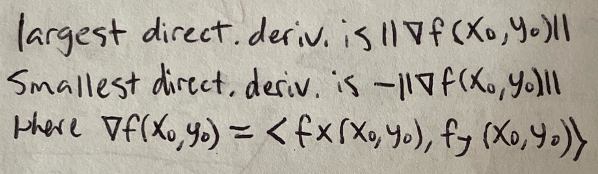 largest direct. deriv. is ||∇f(x₀,y₀)||
Smallest direct. deriv. is -||∇f(x₀,y₀)||
Where ∇f(x₀,y₀) = <fx(x₀,y₀), fy(x₀,y₀)>